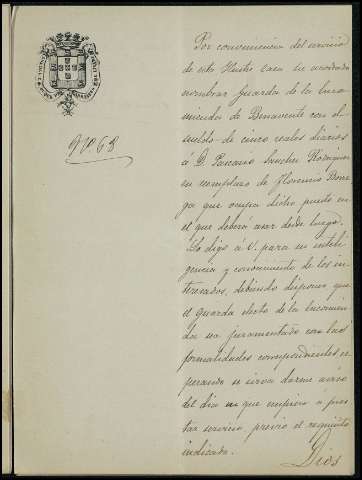 Nº 68
Por conveniencia del servicio
de esta Ilustre Casa he acordado
nombrar Guarda de la Enco
mienda de Benavente con el
sueldo de cinco reales diarios
á D. Pascasio Sanchez Rodriguez
en reemplazo de Florencio Borre
ga que ocupa dicho puesto en
el que deberá cesar desde luego.
Lo digo á V. para su inteli
gencia y conocimiento de los in
teresados, debiendo disponer que
el guarda electo de la Encomien
da sea juramentado con las
formalidades correspondientes es
perando se sirva darme aviso
del dia en que empiece á pres
tar servicio, previo el requisito
indicado.
Dios